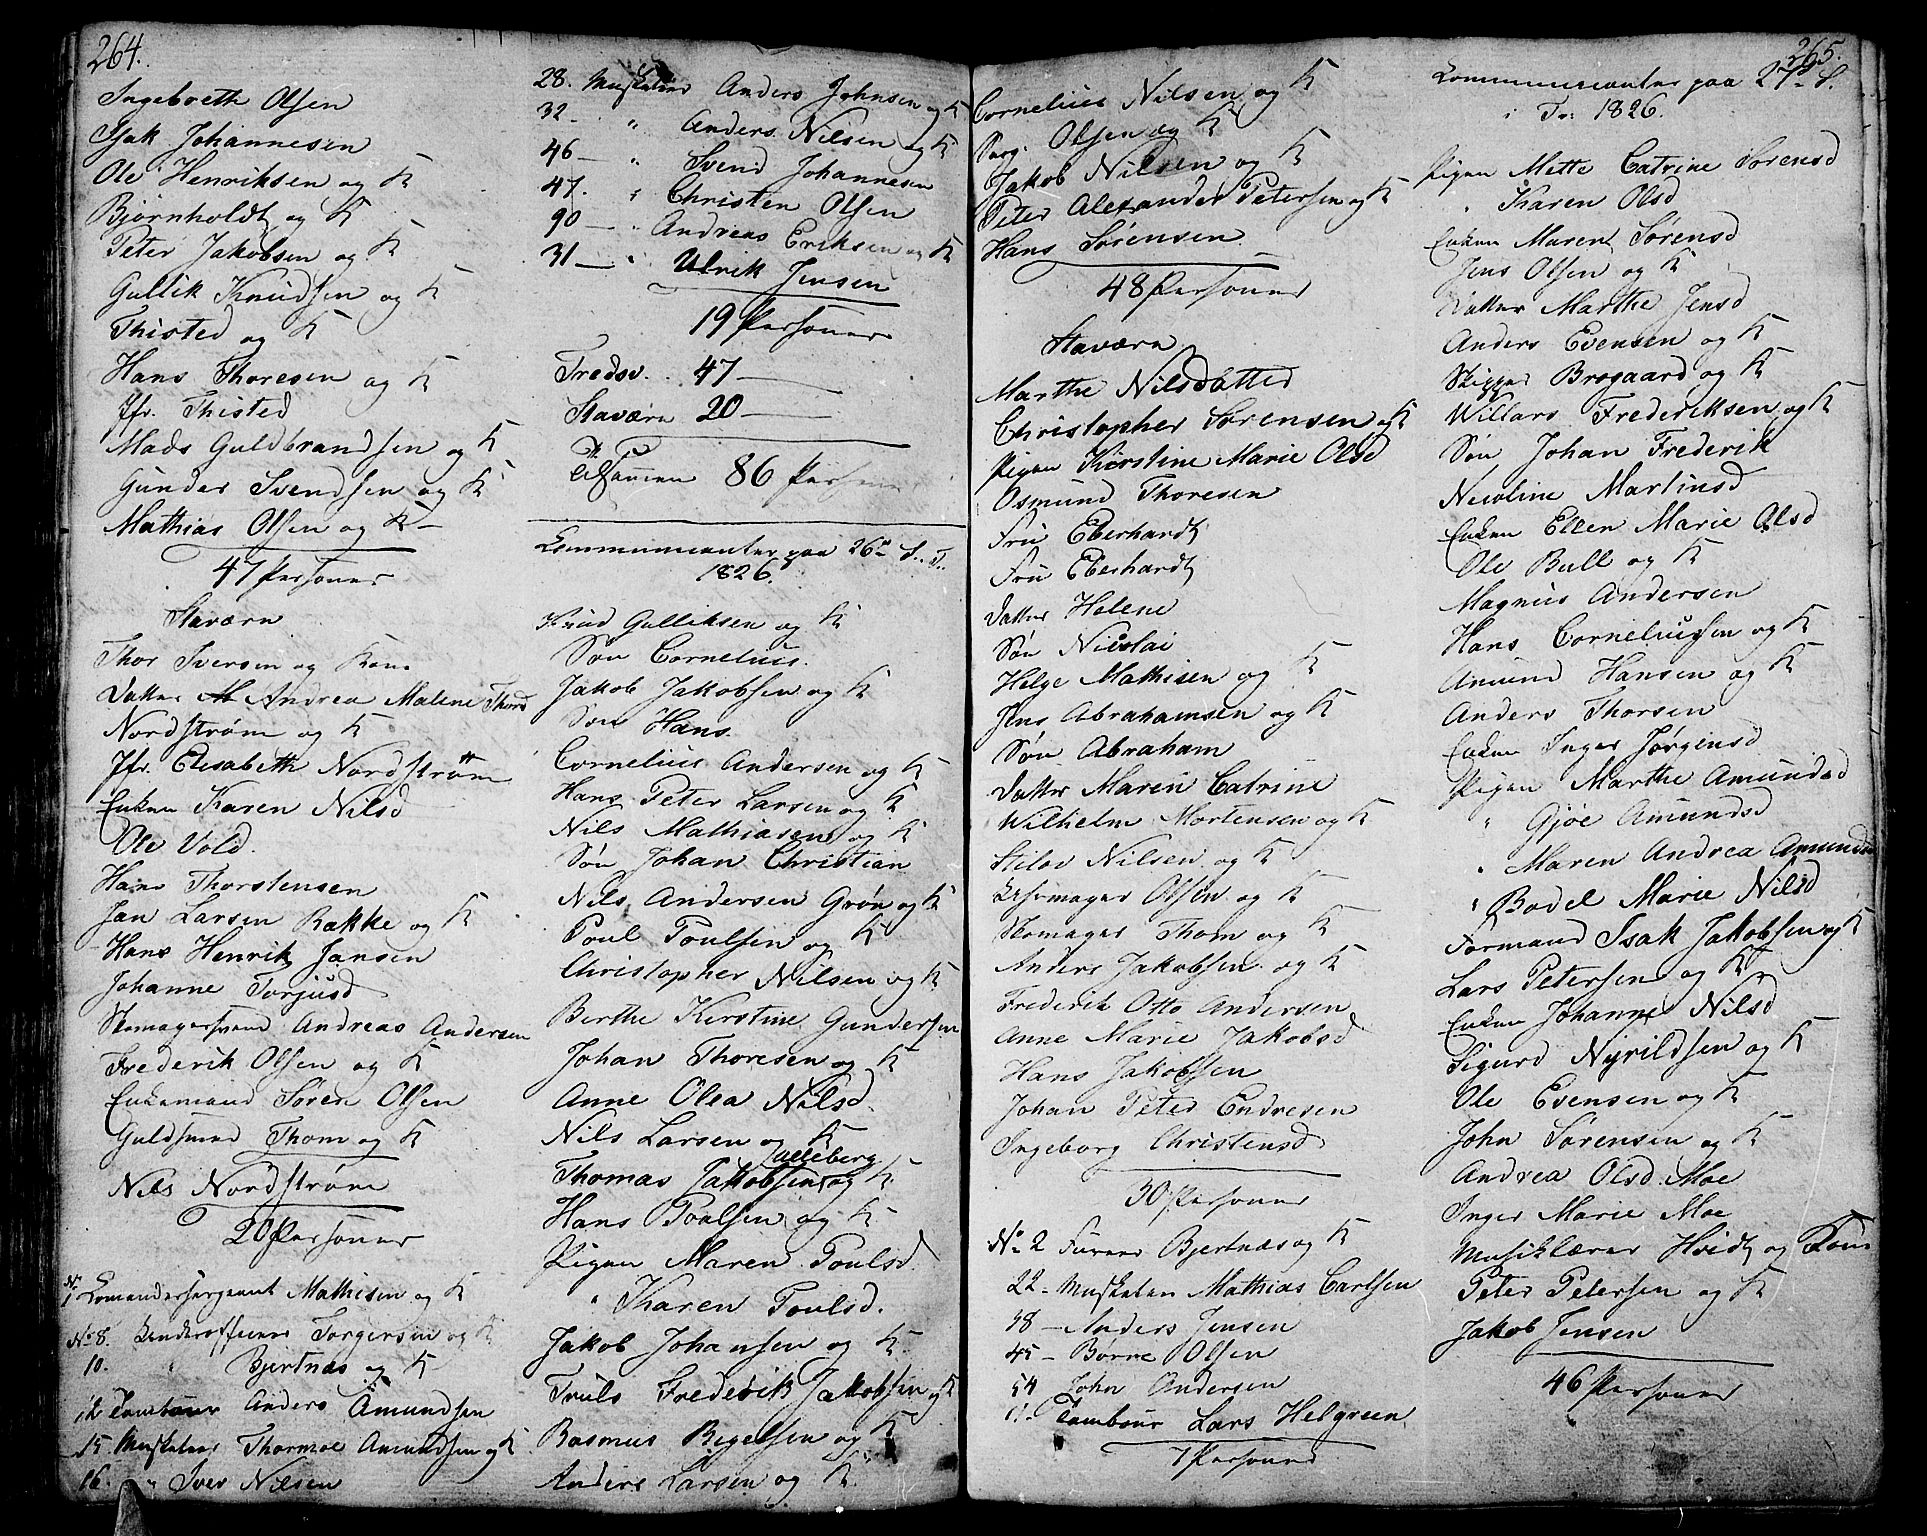 264.
Ingebreth Olsen
Isak Johannesen
Ole Henriksen og K
Bjørnholdt og K
Peter Jakobsen og K
Gullik Knudsen og K
Thisted og K
Hans Thoresen og K
Jfr. Thisted
Mads Guldbrandsen og K
Gunder Svendsen og K
Mathias Olsen og K
47 Personer
Staværn
Thor Iversen og Kone
Datter Andrea Malene Thord
Nordstrøm og K
Jfr. Elisabeth Nordstrøm
Enken Karen Nilsd
Ole Vold.
Hans Thorstensen
Jan Larsen Bakke og K
Hans Henrik Jansen
Johanne Torjusd
Skomagersvend Andreas Andersen
Frederik Olsen og K
Enkemand Søren Olsen
Guldsmed Thom og K
Nils Nordstrøm
20 Personer
No 1 Comandersergeant Mathisen og K
No 8. Underofficeer Torgersen og K
10. " Bjertnæs og K
12 Tambour Anders Amundsen
15 Musketeer Thormoe Amundsen og K
16. " Iver Nilsen
28. Musketeer Anders Johnsen og K
32 - " Anders Nilsen og K
46 - " Svend Johannesen
47. " Christen Olsen
90 - " Andreas Eriksen og K
31 - " Ulrik Jensen
19 Personer
Fredsv. 47 -
Staværn 20 -
Tilsammen 86 Personer
Communicanter paa 26de S. T.
1826.
Knud Gulliksen og K
Søn Cornelius.
Jakob Jakobsen og K
Søn Hans
Cornelius Andersen og K
Hans Peter Larsen og K
Nils Mathiasen og K
Søn Johan Christian
Nils Andersen Grøn og K
Poul Poulsen og K
Christopher Nilsen og K
Berthe Kirstine Gundersen
Johan Thoresen og K
Anne Olea Nilsd.
Nils Larsen og K
Thomas Jakobsen Jalleberg og K
Hans Poulsen og K
Pigen Maren Poulsd.
" Karen Poulsd.
Jakob Johansen og K
Truls Frederik Jakobsen og K
Rasmus Bøgelsen og K
Anders Larsen og K
265.
Cornelius Nilsen og K
Serg. Olsen og K
Jakob Nilsen og K
Peter Alexander Petersen og K
Hans Sørensen
48 Personer
Staværn
Marthe Nilsdatter
Christopher Sørensen og K
Pigen Kirstine Marie Olsd
Osmund Thoresen
Fru Eberhardt
Fru Eberhardt
Datter Helene
Søn Nicolai
Helge Mathisen og K
Jens Abrahamsen og K
Søn Abraham
Datter Maren Catrine
Wilhelm Mortensen og K
Nilsen og K
Uhrmager Olsen og K
Skomager Thom og K
Anders Jakobsen og K
Frederik Otto Andersen
Anne Marie Jakobsd
Hans Jakobsen
Johan Peter Endresen
Ingeborg Christensd
30 Personer
No 2 Fureer Bjertnæs og K
22 - Musketeer Mathias Carlsen
38 - Anders Jensen
45 - Børre Olsen
54 John Andersen
11. Tambour Lars Helgreen
7 Personer
Communicanter paa 27de S.
i Tr: 1826.
Pigen Mette Catrine Sørensd
" Karen Olsd
Enken Maren Sørensd
Jens Olsen og K
Datter Marthe Jensd
Anders Evensen og K
Skipper Brogaard og K
Willars Frederiksen og K
Søn Johan Frederik
Nicoline Martinsd
Enken Ellen Marie Olsd
Ole Bull og K
Magnus Andersen
Hans Corneliussen og K
Amund Hansen og K
Anders Thorsen
Enken Inger Jørgensd
Pigen Marthe Amundsd
" Gjøe Amundsd
" Maren Andrea Amundsen
" Bodel Marie Nilsd
Formand Isak Jakobsen og K
Lars Petersen og K
Enken Johanne Nilsd
Sigurd Nyrildsen og K
Ole Evensen og K
John Sørensen og K
Andrea Olsd. Moe
Inger Marie Moe
Musiklærer Hvidt og Kone
Peter Petersen og K
Jakob Jensen
46 Personer